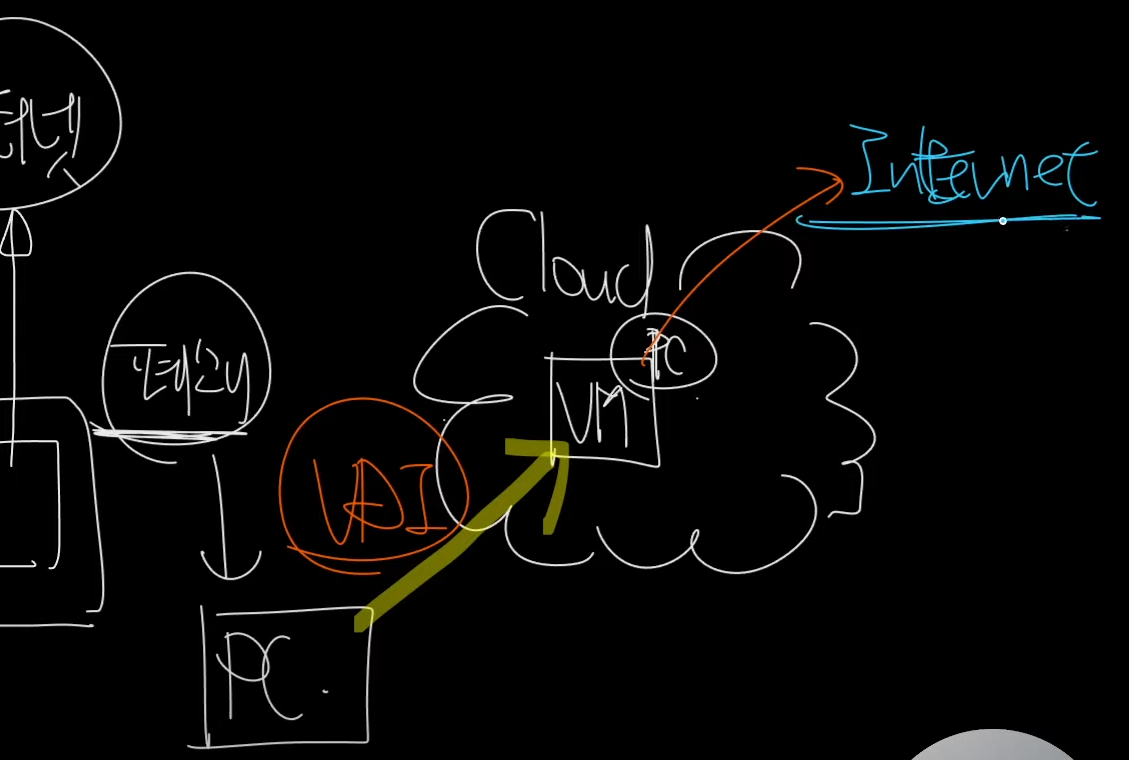 터넷
Internet
Cloud
PC
VM
VDI
PC